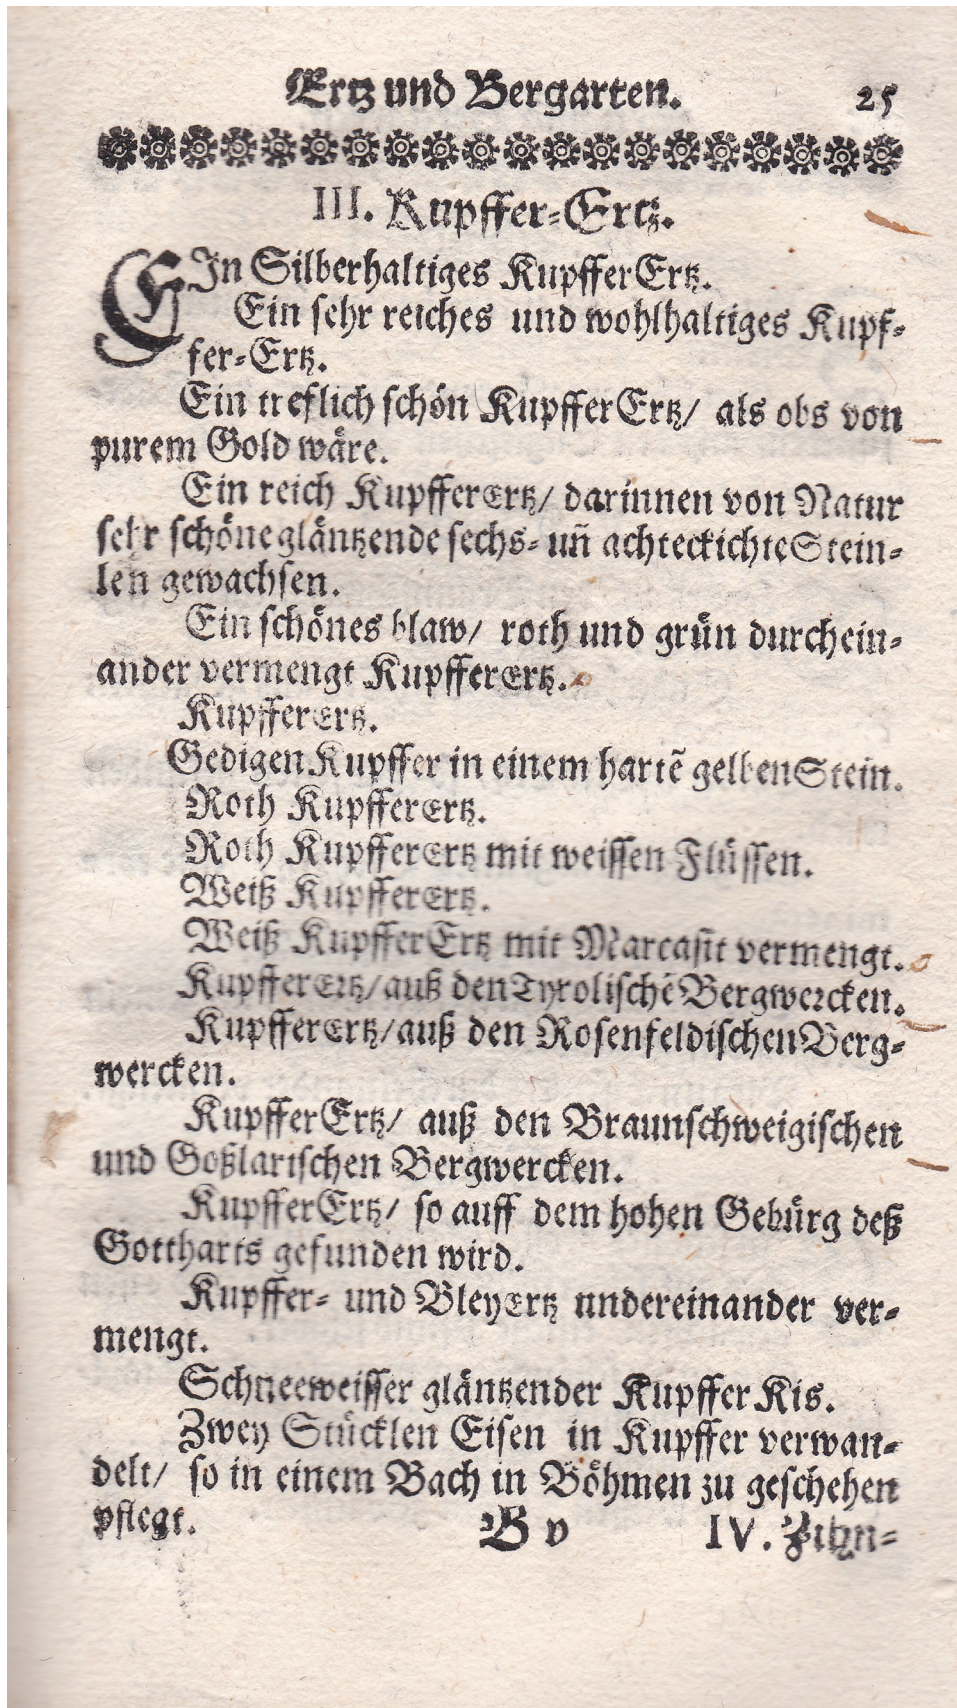 Ertz und Bergarten. 25
III. Kupffer-Ertz.
EIn Silberhaltiges KupfferErtz.
Ein sehr reiches und wohlhaltiges Kupf-
fer-Ertz.
Ein treflich schön KupfferErtz/ als obs von
purem Gold wäre.
Ein reich KupfferErtz/ darinnen von Natur
sehr schöne gläntzende sechs- uñ achteckichte Stein-
len gewachsen.
Ein schönes blaw/ roth und grün durchein-
ander vermengt KupfferErtz.
KupfferErtz.
Gedigen Kupffer in einem hartẽ gelben Stein.
Roth KupfferErtz.
Roth KupfferErtz mit weissen Flüssen.
Weiß KupfferErtz.
Weiß KupfferErtz mit Marcasit vermengt.
KupfferErtz/ auß den Tyrolischẽ Bergwercken.
KupfferErtz/ auß den Rosenfeldischen Berg-
wercken.
KupfferErtz/ auß den Braunschweigischen
und Goßlarischen Bergwercken.
KupfferErtz/ so auff dem hohen Gebürg deß
Gottharts gefunden wird.
Kupffer- und BleyErtz undereinander ver-
mengt.
Schneeweisser gläntzender Kupffer Kis.
Zwey Stücklen Eisen in Kupffer verwan-
delt/ so in einem Bach in Böhmen zu geschehen
pflegt.
B v IV. Zihn-